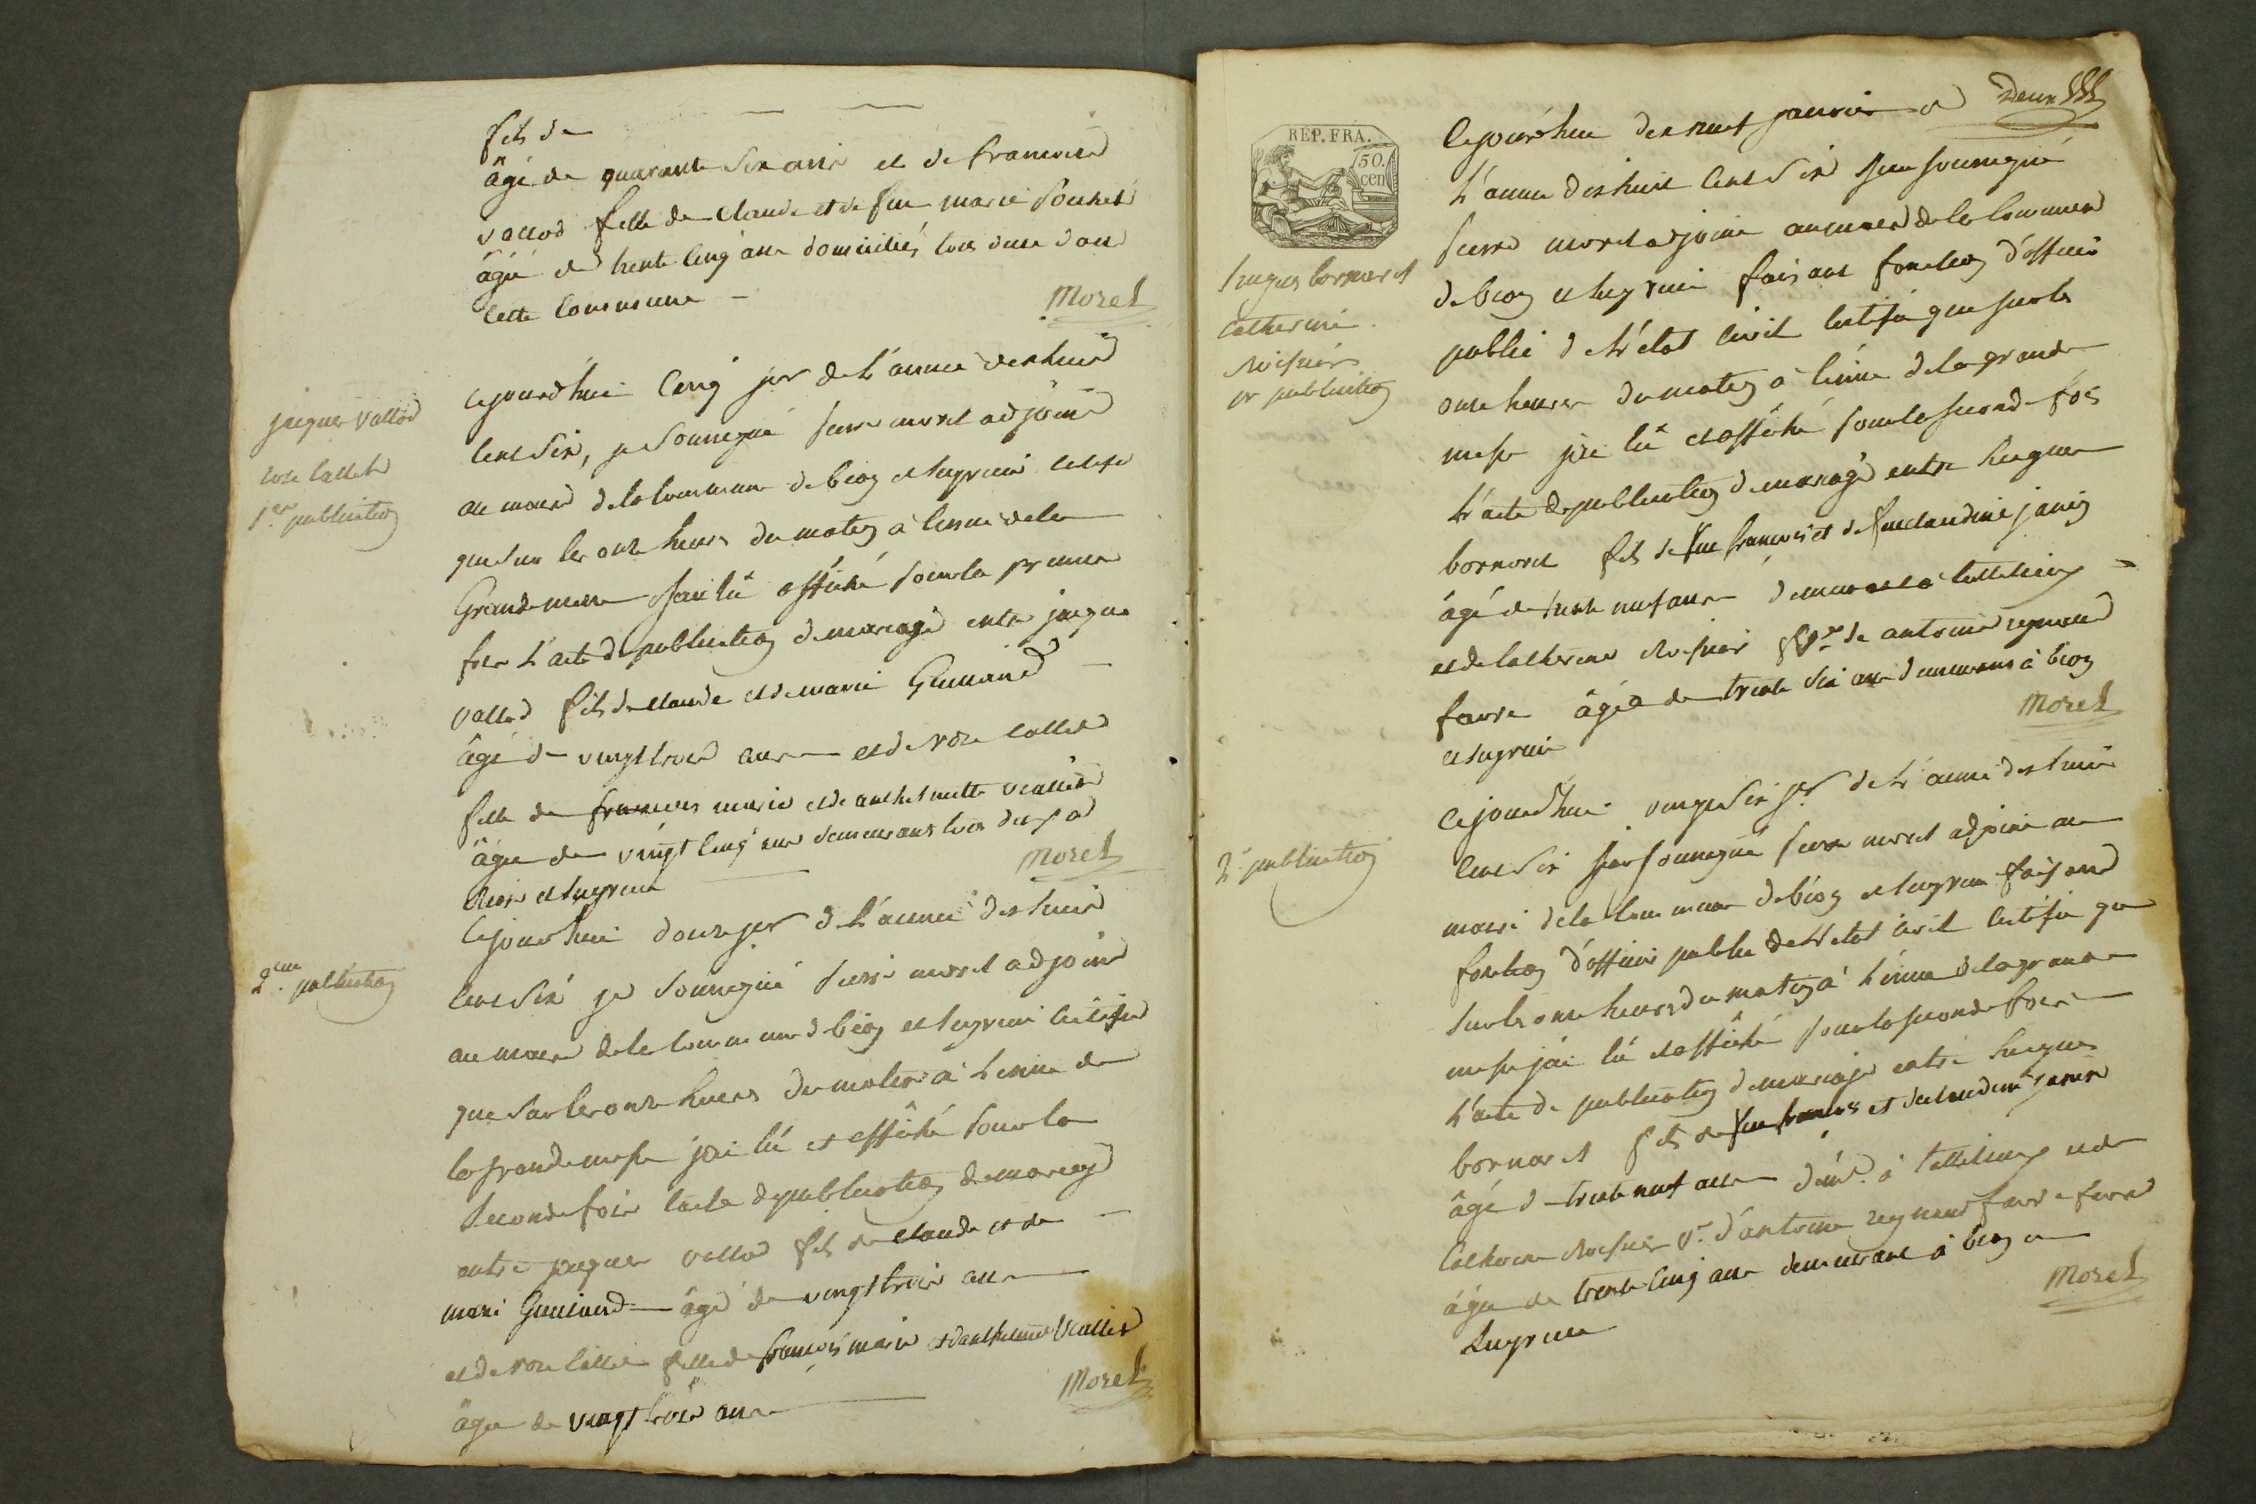 fils de
âgé de quarante six ans et de francoise
vallod fille de claude et de feue marie
âgée de trente cinq ans domiciliés tous deux dans
cette commune
Morel
jacques vallod
rose callet
1ere publication
cejourd'hui cinq jer de l'année dixhuit
cent six, je soussigné pierre morel adjoint
au maire de la commune de béon et luyrieu certifie
que sur les onze heures du matin à l'issue de la
Grande messe j'ai lu affiché pour la premiere
fois l'acte de publication de mariage entre jacques
vallod fils de claude et de marie
âgé de vingt trois ans et de rose callet
fille de francois marie et de anthelmette
âgée de vingt cinq ans demeurans tous deux a
béon et luyrieu
Morel
2eme publication
cejourd'hui douze jer de l'année dixhuit
cent six je soussigné pierre morel adjoint
au maire de la commune de béon et luyrieu certifie
que sur les onze heures du matin à l'issue de
la grande messe j'ai lu et affiché pour la
seconde fois l'acte de publication de mariage
entre jacques vallod fils de claude et de
marie âgé de vingt trois ans
et de rose callet fille de francois marie et d'anthelmette
âgée de vingt trois ans
Morel
REP. FRA.
50.
cen
Deux
hugues bornarel
catherine
pr publication
Cejourd'hui dix neuf janvier
l'année dixhuit cent six je soussigné
pierre morel adjoint au maire de la commune
de béon et luyrieu faisant fonction d'officier
public de l'état civil certifie que sur les
onze heures du matin à l'issue de la grande
messe j'ai lu et affiché pour la seconde fois
l'acte de publication de mariage entre hugues
bornarel fils de feu francois et de feue claudine janin
âgé de trente neuf ans demeurant à
et de catherine de antoine reynaud
favre âgée de trente six ans demeurans à béon
et luyrieu
Morel
2e publication
Cejourd'hui vingt six jer de l'année dixhuit
cent six je soussigné pierre morel adjoint au
maire de la commune de béon et luyrieu faisant
fonction d'officier public de l'etat civil certifie que
sur les onze heures du matin à l'issue de la grande
messe j'ai lu et affiché pour la seconde fois
l'acte de publication de mariage entre hugues
bornarel fils de feu francois et de claudine janin
âgé de trente neuf ans à et de
catherine ve d'antoine reynaud favre
âgée de trente cinq ans demeurant à béon et
Luyrieu
Morel